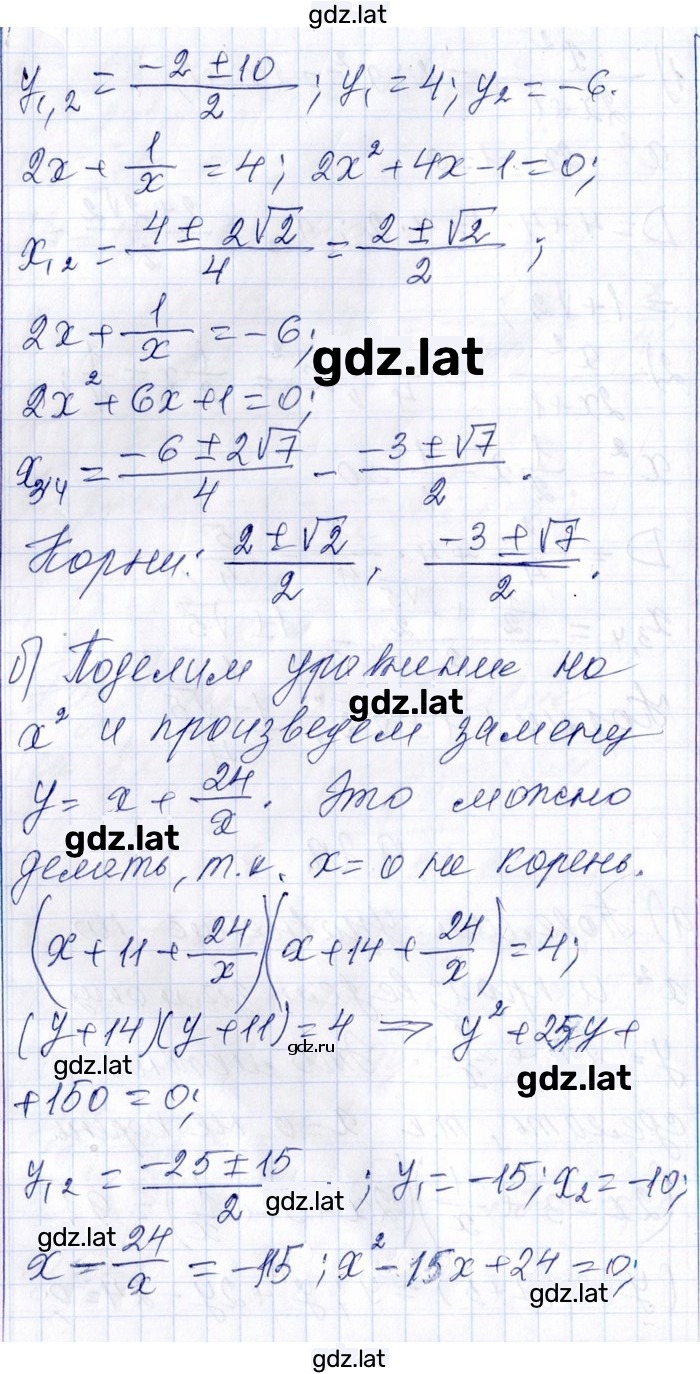 gdz.lat
y₁,₂ = (-2 ± 10)/2 ; y₁ = 4; y₂ = -6.
2x + 1/x = 4; 2x² + 4x - 1 = 0;
x₁,₂ = (4 ± 2√2)/4 = (2 ± √2)/2 ;
2x + 1/x = -6;
gdz.lat
2x² + 6x + 1 = 0;
x₃,₄ = (-6 ± 2√7)/4 - (-3 ± √7)/2 .
Корни: (2 ± √2)/2 , (-3 ± √7)/2 .
б) Поделим уравнение на
gdz.lat
x² и произведем замену
y = x + 24/x . Это можно
gdz.lat
делать, т.к. x = 0 не корень.
(x + 11 + 24/x)(x + 14 + 24/x) = 4;
(y + 14)(y + 11) = 4 ⇒ y² + 25y +
gdz.ru
gdz.lat
gdz.lat
+ 150 = 0;
y₁,₂ = (-25 ± 15)/2 ; y₁ = -15; x₂ = -10;
gdz.lat
gdz.lat
x - 24/x = -15 ; x² - 15x + 24 = 0;
gdz.lat
gdz.lat